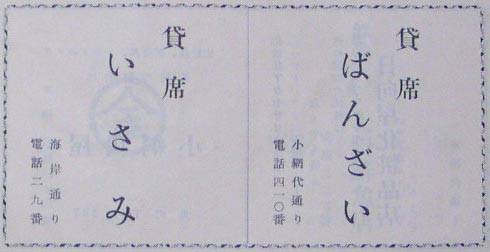 貸席
ばんざい
小網代通り
電話四一〇番
貸席
いさみ
海岸通り
電話二九番